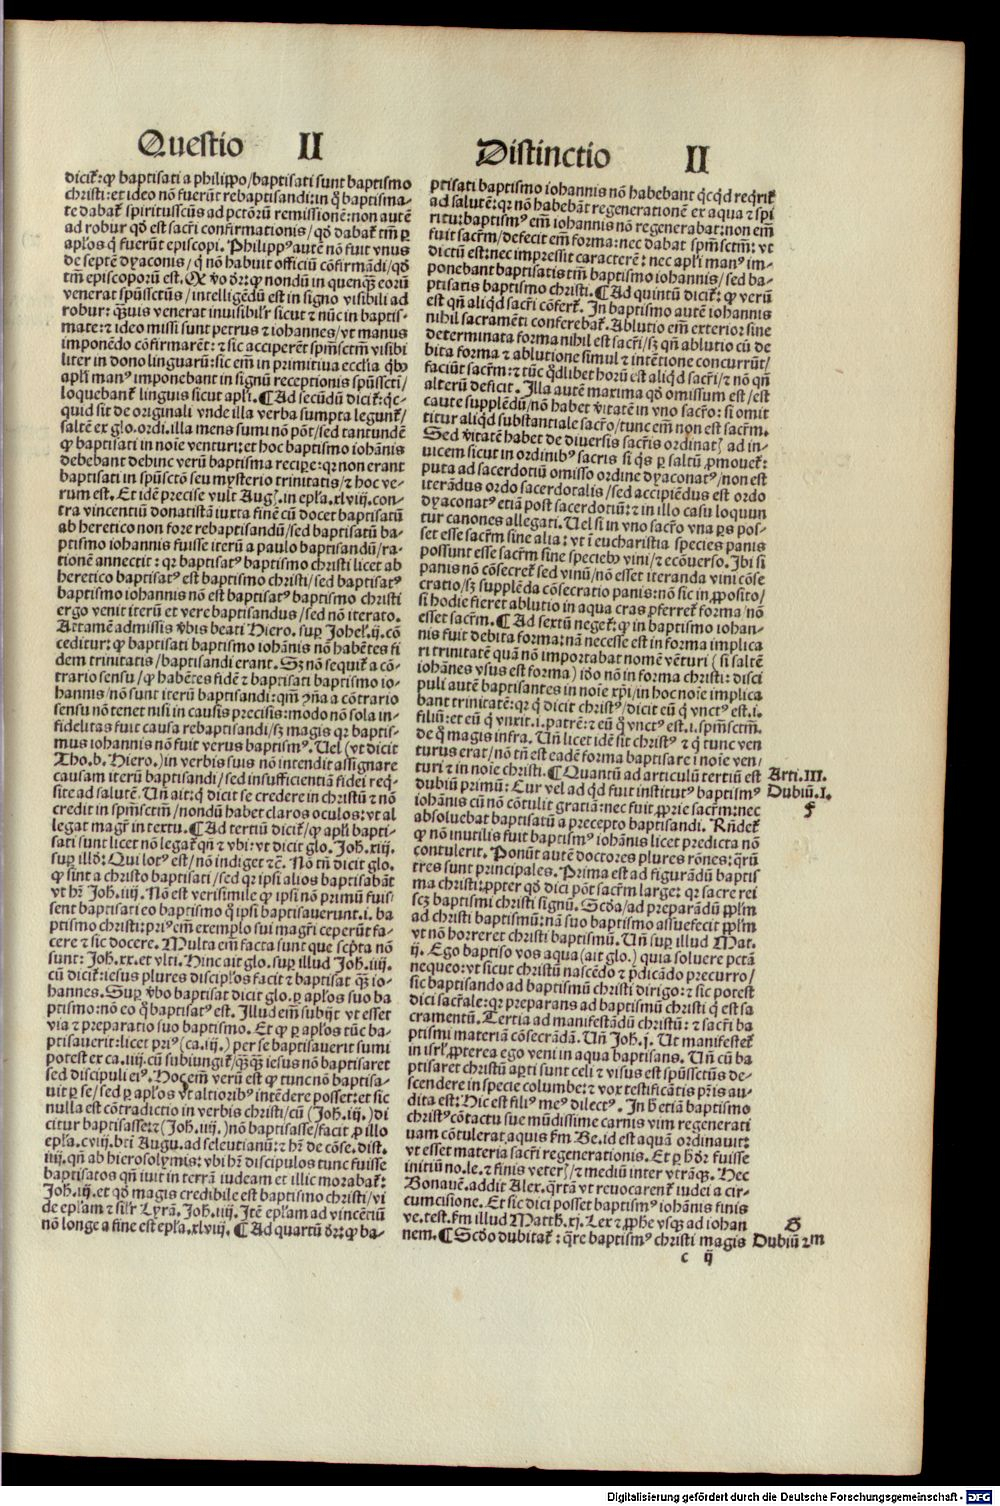 Questio II
dicit̃: ꝙ baptisati a philippo/baptisati sunt baptismo
christi: et ideo nõ fuerũt rebaptisandi: in q̃ baptisma-
te dabat̃ spiritusscũs ad pctõrũ remissionẽ: non autẽ
ad robur qđ est sacr̃i confirmationis/qđ dabat̃ tm̃ ꝑ
apl̃os q̃ fuerũt episcopi. Philippꝰ autẽ nõ fuit vnus
de septẽ dyaconis/q̃ nõ habuit officiũ cõfirmãdi/qđ
tm̃ episcoporũ est. Qđ vo dr̃: ꝙ nondũ in quenq̃ȝ eorũ
venerat spũssctũs/intelligẽdũ est in signo visibili ad
robur: q̃ȝuis venerat inuisibilr̃ sicut ⁊ nũc in baptis-
mate: ⁊ ideo missi sunt petrus ⁊ iohannes/vt manus
imponẽdo cõfirmarẽt: ⁊ sic acciperẽt spm̃sctm̃ visibi
liter in dono linguarũ: sic em̃ in primitiua eccl̃ia q̃bꝰ
apl̃i manꝰ imponebant in signũ receptionis spũsscti/
loquebant̃ linguis sicut apl̃i. ¶ Ad secũdũ dicit̃: q̃c-
quid sit de originali vnde illa verba sumpta legunt̃/
saltẽ ex glo. ordi. illa mens sumi nõ põt/sed tantundẽ
ꝙ baptisati in noĩe venturi: et hoc baptismo iohãnis
debebant dehinc verũ baptisma recipe: qr non erant
baptisati in spũsctõ seu mysterio trinitatis/⁊ hoc ve-
rum est. Et idẽ precise vult Augꝰ. in epl̃a.xlviij. con-
tra vincentiũ donatistã iuxta finẽ cũ docet baptisatũ
ab heretico non fore rebaptisandũ/sed baptisatũ ba-
ptismo iohannis fuisse iterũ a paulo baptisandũ/ra-
tionẽ annectit: qr baptisatꝰ baptismo christi licet ab
heretico baptisatꝰ est baptismo christi/sed baptisatꝰ
baptismo iohannis nõ est baptisatꝰ baptismo christi
ergo venit iterũ et vere baptisandus/sed nõ iterato.
Attamẽ admissis v̾bis beati Hiero. suꝑ Johel̃.ij. cõ
ceditur: ꝙ baptisati baptismo iohãnis nõ habẽtes fi
dem trinitatis/baptisandi erant. Sȝ nõ sequit̃ a cõ-
trario sensu/ꝙ habẽtes fidẽ ⁊ baptisati baptismo io-
hannis/nõ sunt iterũ baptisandi: qm̃ ꝯña a cõtrario
sensu nõ tenet nisi in causis precisis: modo nõ sola in-
fidelitas fuit causa rebaptisandi/sȝ magis qr baptis-
mus iohannis nõ fuit verus baptismꝰ. Uel (vt dicit
Tho. b. Hiero.) in verbis suis nõ intendit assignare
causam iterũ baptisandi/sed insufficientiã fidei req̃-
site ad salutẽ. Uñ ait: q̃ dicit se credere in christũ ⁊ nõ
credit in spm̃sctm̃/nondũ habet claros oculos: vt al
legat magr̃ in textu. ¶ Ad tertiũ dicit̃/ꝙ apl̃i bapti-
sati sunt licet nõ legat̃ qñ ⁊ vbi: vt dicit glo. Joh̃. xiij.
suꝑ illđ: Qui lotꝰ est/nõ indiget ⁊c̃. Nõ tñ dicit glo.
ꝙ sint a christo baptisati/sed qr ipsi alios baptisabãt
vt hr̃ Joh̃. iiij. Nõ est verisimile ꝙ ipsi nõ primũ fuis
sent baptisati eo baptismo q̃ ipsi baptisauerunt.i. ba
ptismo christi: priꝰ em̃ exemplo sui magr̃i ceperũt fa-
cere ⁊ sic docere. Multa em̃ facta sunt que scpta nõ
sunt: Joh̃. xx. et vlti. Hinc ait glo. suꝑ illud Joh̃. iiij.
cũ dicit̃: iesus plures discipl̃os facit ⁊ baptisat q̃ȝ io-
hannes. Suꝑ v̾bo baptisat dicit glo. ꝑ apl̃os suo ba
ptismo: nõ eo q̃ baptisatꝰ est. Illud em̃ subijt vt esset
via ⁊ preparatio suo baptismo. Et ꝙ ꝑ apl̃os tũc ba-
ptisauerit: licet priꝰ (ca.iij.) per se baptisauerit sumi
potest ex ca.iiij. cũ subiungit̃/q̃ȝq̃ȝ iesus nõ baptisaret
sed discipuli eiꝰ. Hoc em̃ verũ est ꝙ tunc nõ baptisa-
uit ꝑ se/sed ꝑ apl̃os vt altioribꝰ intẽdere posset: et sic
nulla est cõtradictio in verbis christi/cũ (Joh̃. iij.) di
citur baptisasse: ⁊ (Joh̃. iiij.) nõ baptisasse/facit ꝓ illo
epl̃a.cviij. bti Augu. ad seleutianũ: ⁊ hr̃ de cõse. dist.
iiij. qñ ab hierosolymis: vbi hr̃ discipulos tunc fuisse
baptisatos qñ iuit in terrã iudeam et illic morabat̃:
Joh̃. iij. et qđ magis credibile est baptismo christi/vi
de epl̃am ⁊ silr̃ Lyrã. Joh̃. iiij. Itẽ epl̃am ad vincẽtiũ
nõ longe a fine est epl̃a.xlviij. ¶ Ad quartũ dr̃: ꝙ ba-
Distinctio II
ptisati baptismo iohannis nõ habebant q̃cq̃d req̃rit̃
ad salutẽ: qr nõ habebãt regenerationẽ ex aqua ⁊ spi
ritu: baptismꝰ em̃ iohannis nõ regenerabat: non em̃
fuit sacr̃m/defecit em̃ forma: nec dabat spm̃sctm̃: vt
dictũ est: nec impressit caracterẽ: nec apl̃i manꝰ im-
ponebant baptisatis tm̃ baptismo iohannis/sed ba-
ptisatis baptismo christi. ¶ Ad quintũ dicit̃: ꝙ verũ
est qñ aliq̃d sacr̃i cõfert̃. In baptismo autẽ iohannis
nihil sacramẽti conferebat̃. Ablutio em̃ exterior sine
determinata forma nihil est sacr̃i/sȝ qñ ablutio cũ de
bita forma ⁊ ablutione simul ⁊ intẽtione concurrũt/
faciũt sacr̃m: ⁊ tũc q̃dlibet horũ est aliq̃d sacr̃i/⁊ nõ qñ
alterũ deficit. Illa autẽ maxima qđ omissum est/est
caute supplẽdũ/nõ habet v̾itatẽ in vno sacr̃o: si omit
titur aliq̃d substantiale sacr̃o/tunc em̃ non est sacr̃m.
Sed v̾itatẽ habet de diuersis sacr̃is ordinatꝭ ad in-
uicem sicut in ordinibꝰ sacris si q̃s ꝑ saltũ ꝓmouet̃:
puta ad sacerdotiũ omisso ordine dyaconatꝰ/non est
iterãdus ordo sacerdotalis/sed accipiẽdus est ordo
dyaconatꝰ etiã post sacerdotiũ: ⁊ in illo casu loquun
tur canones allegati. Uel si in vno sacr̃o vna ꝑs pos-
set esse sacr̃m sine alia: vt ĩ eucharistia species panis
possunt esse sacr̃m sine speciebꝰ vini/⁊ ecõuerso. Ibi si
panis nõ cõsecret̃ sed vinũ/nõ esset iteranda vini cõse
cratio/sȝ supplẽda cõsecratio panis: nõ sic in ꝓposito/
si hodie fieret ablutio in aqua cras ꝓferret̃ forma/nõ
esset sacr̃m. ¶ Ad sextũ neget̃: ꝙ in baptismo iohan-
nis fuit debita forma: nã necesse est in forma implica
ri trinitatẽ quã nõ importabat nomẽ vẽturi (si saltẽ
iohãnes vsus est forma) iđo nõ in forma christi: disci
puli autẽ baptisantes in noĩe xp̃i/in hoc noĩe implica
bant trinitatẽ: qr q̃ dicit christꝰ/dicit eũ q̃ vnctꝰ est.i.
filiũ: et eũ q̃ vnxit.i. patrẽ: ⁊ eũ q̃ vnctꝰ est.i. spm̃sctm̃.
de q̃ magis infra. Uñ licet idẽ sit christꝰ ⁊ q̃ tunc ven
turus erat/nõ tñ est eadẽ forma baptisare ĩ noĩe ven/
turi ⁊ in noĩe christi. ¶ Quantũ ad articulũ tertiũ est
dubiũ primũ: Cur vel ad q̃d fuit institutꝰ baptismꝰ
iohãnis cũ nõ cõtulit gratiã: nec fuit ꝓprie sacr̃m: nec
absoluebat baptisatũ a precepto baptisandi. Rñdet̃
ꝙ nõ inutilis fuit baptismꝰ iohãnis licet predicta nõ
contulerit. Ponũt autẽ doctores plures rõnes: q̃rũ
tres sunt principales. Prima est ad figurãdũ baptis
ma christi: ꝓpter qđ dici põt sacr̃m large: qr sacre rei
scȝ baptismi christi signũ. Scđa/ad preparãdũ ppl̃m
ad christi baptismũ: nã suo baptismo assuefecit ppl̃m
vt nõ horreret christi baptismũ. Uñ suꝑ illud Mat.
ij. Ego baptiso vos aqua (ait glo.) quia soluere pctã
nequeo: vt sicut christũ nascẽdo ⁊ p̃dicãdo precurro/
sic baptisando ad baptismũ christi dirigo: ⁊ sic potest
dici sacr̃ale: qr preparans ad baptismũ christi q̃ est sa
cramentũ. Tertia ad manifestãdũ christũ: ⁊ sacr̃i ba
ptismi materiã cõsecrãdã. Uñ Joh̃. j. Ut manifestet̃
in isrl̃/ꝓpterea ego veni in aqua baptisans. Uñ cũ ba
ptisaret christũ aꝑti sunt celi ⁊ visus est spũssctũs de-
scendere in specie columbe: ⁊ vox testificãtis pr̃is au-
dita est: Hic est filiꝰ meꝰ dilectꝰ. In h̃ etiã baptismo
christꝰ cõtactu sue mũdissime carnis vim regenerati
uam cõtulerat aquis fm̃ Be. id est aquã ordinauit:
vt esset materia sacr̃i regenerationis. Et ꝑ h̃ dr̃ fuisse
initiũ no. le. ⁊ finis veterꝭ/⁊ mediũ inter vtrãq̃ȝ. Hec
Bonauẽ. addit Alex. q̃rtã vt reuocarent̃ iudei a cir-
cumcisione. Et sic dici posset baptismꝰ iohãnis finis
ve. test. fm̃ illud Matth̃. xj. Lex ⁊ ꝓphe vsq̃ȝ ad iohan
nem. ¶ Scđo dubitat̃: q̃re baptismꝰ christi magis
Arti. III.
Dubiũ. I.
f
Dubiũ 2m
c ij
Digitalisierung gefördert durch die Deutsche Forschungsgemeinschaft - DFG